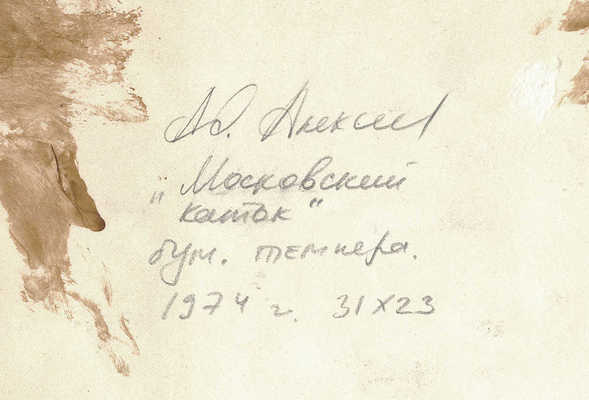 Ад. Алексеев
"Московский
каток"
бум. темпера.
1974 г. 31х23